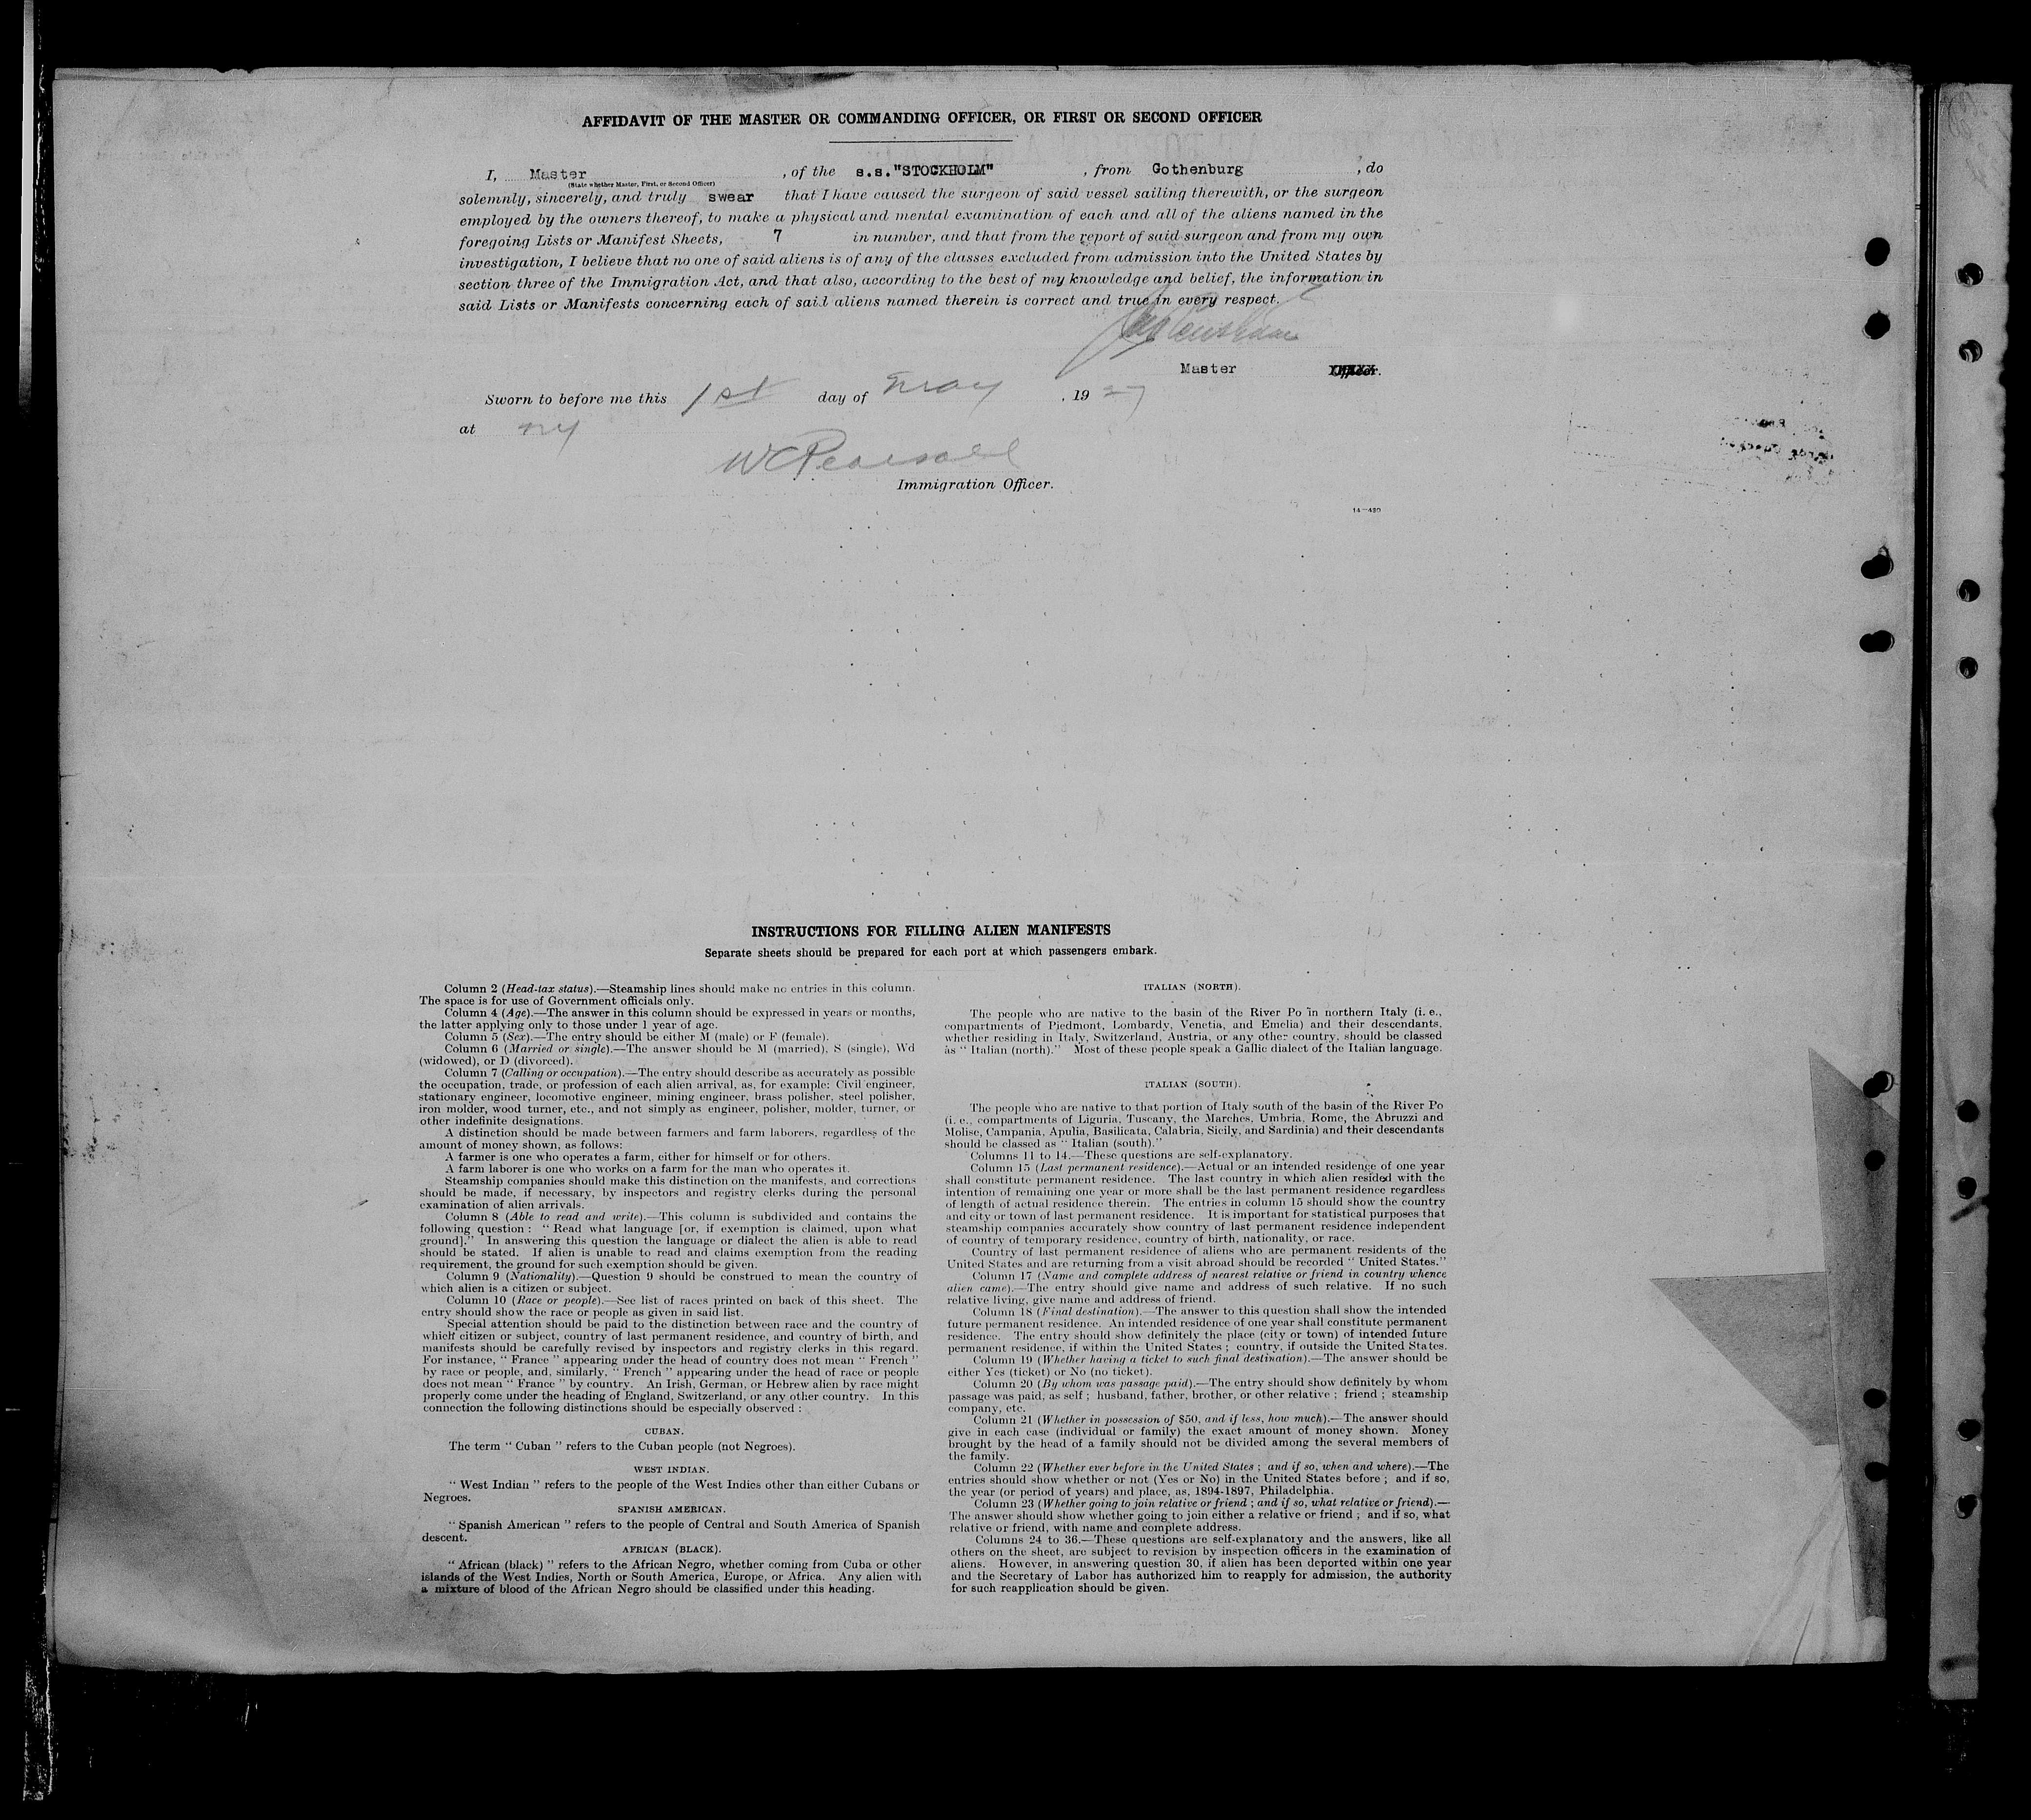 AFFIDAVIT OF THE MASTER OR COMMANDING OFFICER, OR FIRST OR SECOND OFFICER
I, Master , of the s.s."STOCKHOLM" , from Gothenburg , do
(State whether Master, First, or Second Officer)
solemnly, sincerely, and truly swear that I have caused the surgeon of said vessel sailing therewith, or the surgeon
employed by the owners thereof, to make a physical and mental examination of each and all of the aliens named in the
foregoing Lists or Manifest Sheets, 7 in number, and that from the report of said surgeon and from my own
investigation, I believe that no one of said aliens is of any of the classes excluded from admission into the United States by
section three of the Immigration Act, and that also, according to the best of my knowledge and belief, the information in
said Lists or Manifests concerning each of said aliens named therein is correct and true in every respect.
Master Officer.
Sworn to before me this 1st day of May , 1927
at NY
WC Pearsall
Immigration Officer.
14—430
INSTRUCTIONS FOR FILLING ALIEN MANIFESTS
Separate sheets should be prepared for each port at which passengers embark.
Column 2 (Head-tax status).—Steamship lines should make no entries in this column.
The space is for use of Government officials only.
Column 4 (Age).—The answer in this column should be expressed in years or months,
the latter applying only to those under 1 year of age.
Column 5 (Sex).—The entry should be either M (male) or F (female).
Column 6 (Married or single).—The answer should be M (married), S (single), Wd
(widowed), or D (divorced).
Column 7 (Calling or occupation).—The entry should describe as accurately as possible
the occupation, trade, or profession of each alien arrival, as, for example: Civil engineer,
stationary engineer, locomotive engineer, mining engineer, brass polisher, steel polisher,
iron molder, wood turner, etc., and not simply as engineer, polisher, molder, turner, or
other indefinite designations.
A distinction should be made between farmers and farm laborers, regardless of the
amount of money shown, as follows:
A farmer is one who operates a farm, either for himself or for others.
A farm laborer is one who works on a farm for the man who operates it.
Steamship companies should make this distinction on the manifests, and corrections
should be made, if necessary, by inspectors and registry clerks during the personal
examination of alien arrivals.
Column 8 (Able to read and write).—This column is subdivided and contains the
following question : “ Read what language [or, if exemption is claimed, upon what
ground].” In answering this question the language or dialect the alien is able to read
should be stated. If alien is unable to read and claims exemption from the reading
requirement, the ground for such exemption should be given.
Column 9 (Nationality).—Question 9 should be construed to mean the country of
which alien is a citizen or subject.
Column 10 (Race or people).—See list of races printed on back of this sheet. The
entry should show the race or people as given in said list.
Special attention should be paid to the distinction between race and the country of
which citizen or subject, country of last permanent residence, and country of birth, and
manifests should be carefully revised by inspectors and registry clerks in this regard.
For instance, “ France ” appearing under the head of country does not mean “ French ”
by race or people, and, similarly, “ French ” appearing under the head of race or people
does not mean “ France ” by country. An Irish, German, or Hebrew alien by race might
properly come under the heading of England, Switzerland, or any other country. In this
connection the following distinctions should be especially observed :
CUBAN.
The term “ Cuban ” refers to the Cuban people (not Negroes).
WEST INDIAN.
“ West Indian ” refers to the people of the West Indies other than either Cubans or
Negroes.
SPANISH AMERICAN.
“ Spanish American ” refers to the people of Central and South America of Spanish
descent.
AFRICAN (BLACK).
“ African (black) ” refers to the African Negro, whether coming from Cuba or other
islands of the West Indies, North or South America, Europe, or Africa. Any alien with
a mixture of blood of the African Negro should be classified under this heading.
ITALIAN (NORTH).
The people who are native to the basin of the River Po in northern Italy (i. e.,
compartments of Piedmont, Lombardy, Venetia, and Emelia) and their descendants,
whether residing in Italy, Switzerland, Austria, or any other country, should be classed
as “ Italian (north).” Most of these people speak a Gallic dialect of the Italian language.
ITALIAN (SOUTH).
The people who are native to that portion of Italy south of the basin of the River Po
(i. e., compartments of Liguria, Tuscany, the Marches, Umbria, Rome, the Abruzzi and
Molise, Campania, Apulia, Basilicata, Calabria, Sicily, and Sardinia) and their descendants
should be classed as “ Italian (south).”
Columns 11 to 14.—These questions are self-explanatory.
Column 15 (Last permanent residence).—Actual or an intended residence of one year
shall constitute permanent residence. The last country in which alien resided with the
intention of remaining one year or more shall be the last permanent residence regardless
of length of actual residence therein. The entries in column 15 should show the country
and city or town of last permanent residence. It is important for statistical purposes that
steamship companies accurately show country of last permanent residence independent
of country of temporary residence, country of birth, nationality, or race.
Country of last permanent residence of aliens who are permanent residents of the
United States and are returning from a visit abroad should be recorded “ United States.”
Column 17 (Name and complete address of nearest relative or friend in country whence
alien came).—The entry should give name and address of such relative. If no such
relative living, give name and address of friend.
Column 18 (Final destination).—The answer to this question shall show the intended
future permanent residence. An intended residence of one year shall constitute permanent
residence. The entry should show definitely the place (city or town) of intended future
permanent residence, if within the United States ; country, if outside the United States.
Column 19 (Whether having a ticket to such final destination).—The answer should be
either Yes (ticket) or No (no ticket).
Column 20 (By whom was passage paid).—The entry should show definitely by whom
passage was paid, as self ; husband, father, brother, or other relative ; friend ; steamship
company, etc.
Column 21 (Whether in possession of $50, and if less, how much).—The answer should
give in each case (individual or family) the exact amount of money shown. Money
brought by the head of a family should not be divided among the several members of
the family.
Column 22 (Whether ever before in the United States ; and if so, when and where).—The
entries should show whether or not (Yes or No) in the United States before ; and if so,
the year (or period of years) and place, as, 1894-1897, Philadelphia.
Column 23 (Whether going to join relative or friend ; and if so, what relative or friend).—
The answer should show whether going to join either a relative or friend ; and if so, what
relative or friend, with name and complete address.
Columns 24 to 36.—These questions are self-explanatory and the answers, like all
others on the sheet, are subject to revision by inspection officers in the examination of
aliens. However, in answering question 30, if alien has been deported within one year
and the Secretary of Labor has authorized him to reapply for admission, the authority
for such reapplication should be given.